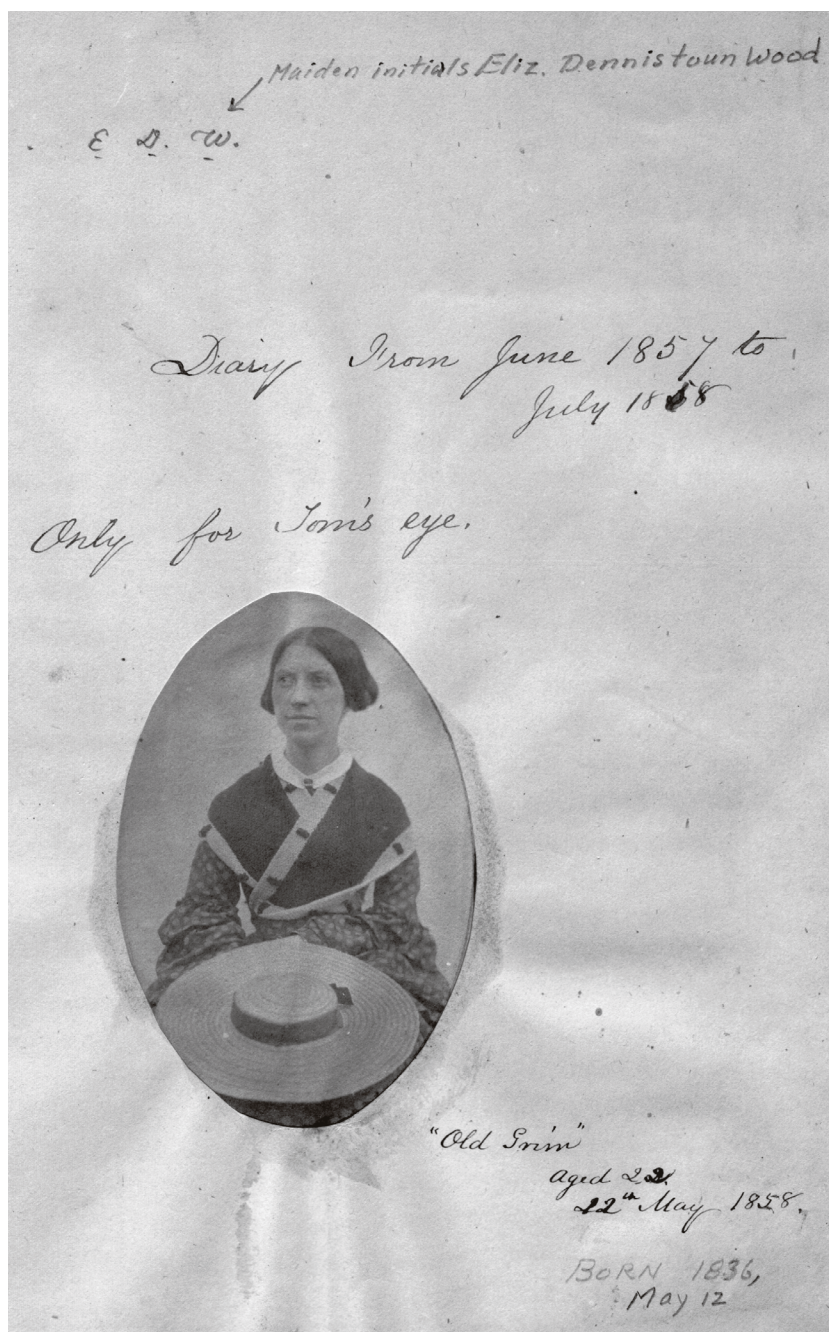 Maiden initials Eliz. Dennistoun Wood
E D. W.
Diary From June 1857 to
July 1858
Only for Tom's eye.
"Old Grim"
aged 22.
22th May 1858.
BORN 1836,
May 12